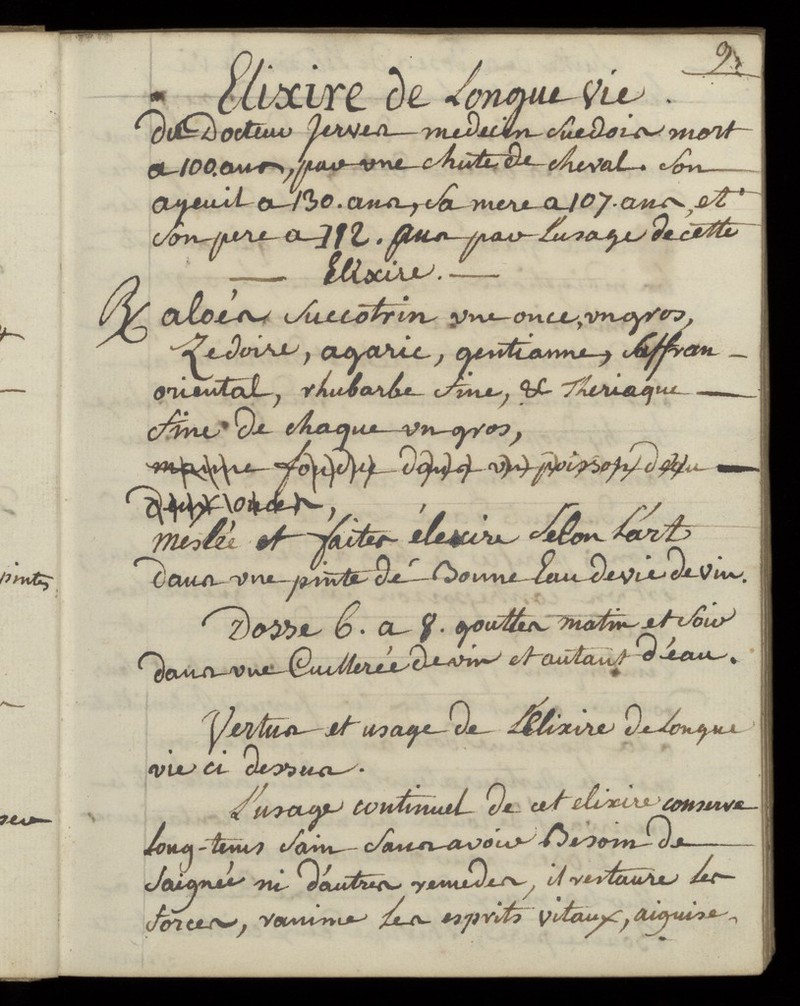 9.
Elixire de Longue vie.
du Docteur Jerner medecin Suedois mort
a 100. ans, par une chute de cheval. Son
ayeuil a 130. ans, sa mere a 107. ans, et
son pere a 112. ans par l'usage de cette
— Elixire. —
℞ aloés succotrin une once, un gros,
Zedoire, agaric, gentianne, saffran
oriental, rhubarbe fine, & Theriaque —
fine de chaque un gros,
manne fondue dans un poisson d'eau —
deux onces,
meslée et faites élexire selon l'art
dans une pinte dé Bonne Eau de vie de vin.
Dosse 6. a 8. gouttes matin et soir
dans une Cuillerée de vin et autant d'éau.
Vertus et usage de L'Elixire de Longue
vie ci dessus.
L'usage continuel de cet elixire conserve
long-tems sain sans avoir Besoin de
saignée ni d'autres remedes, il restaure les
forces, ranime les esprits vitaux, aiguise
pintes